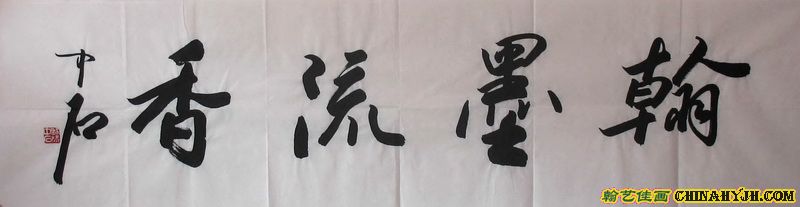 翰墨流香
中石
翰艺佳画 CHINAHYJH.COM